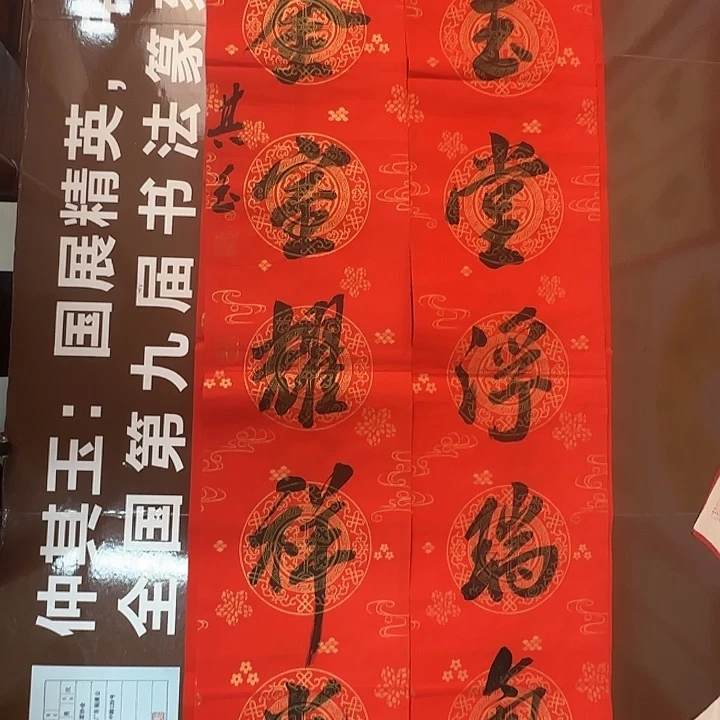 玉堂浮瑞氣
金室耀祥光
其玉
仲其玉：国展精英，
全国第九届书法篆